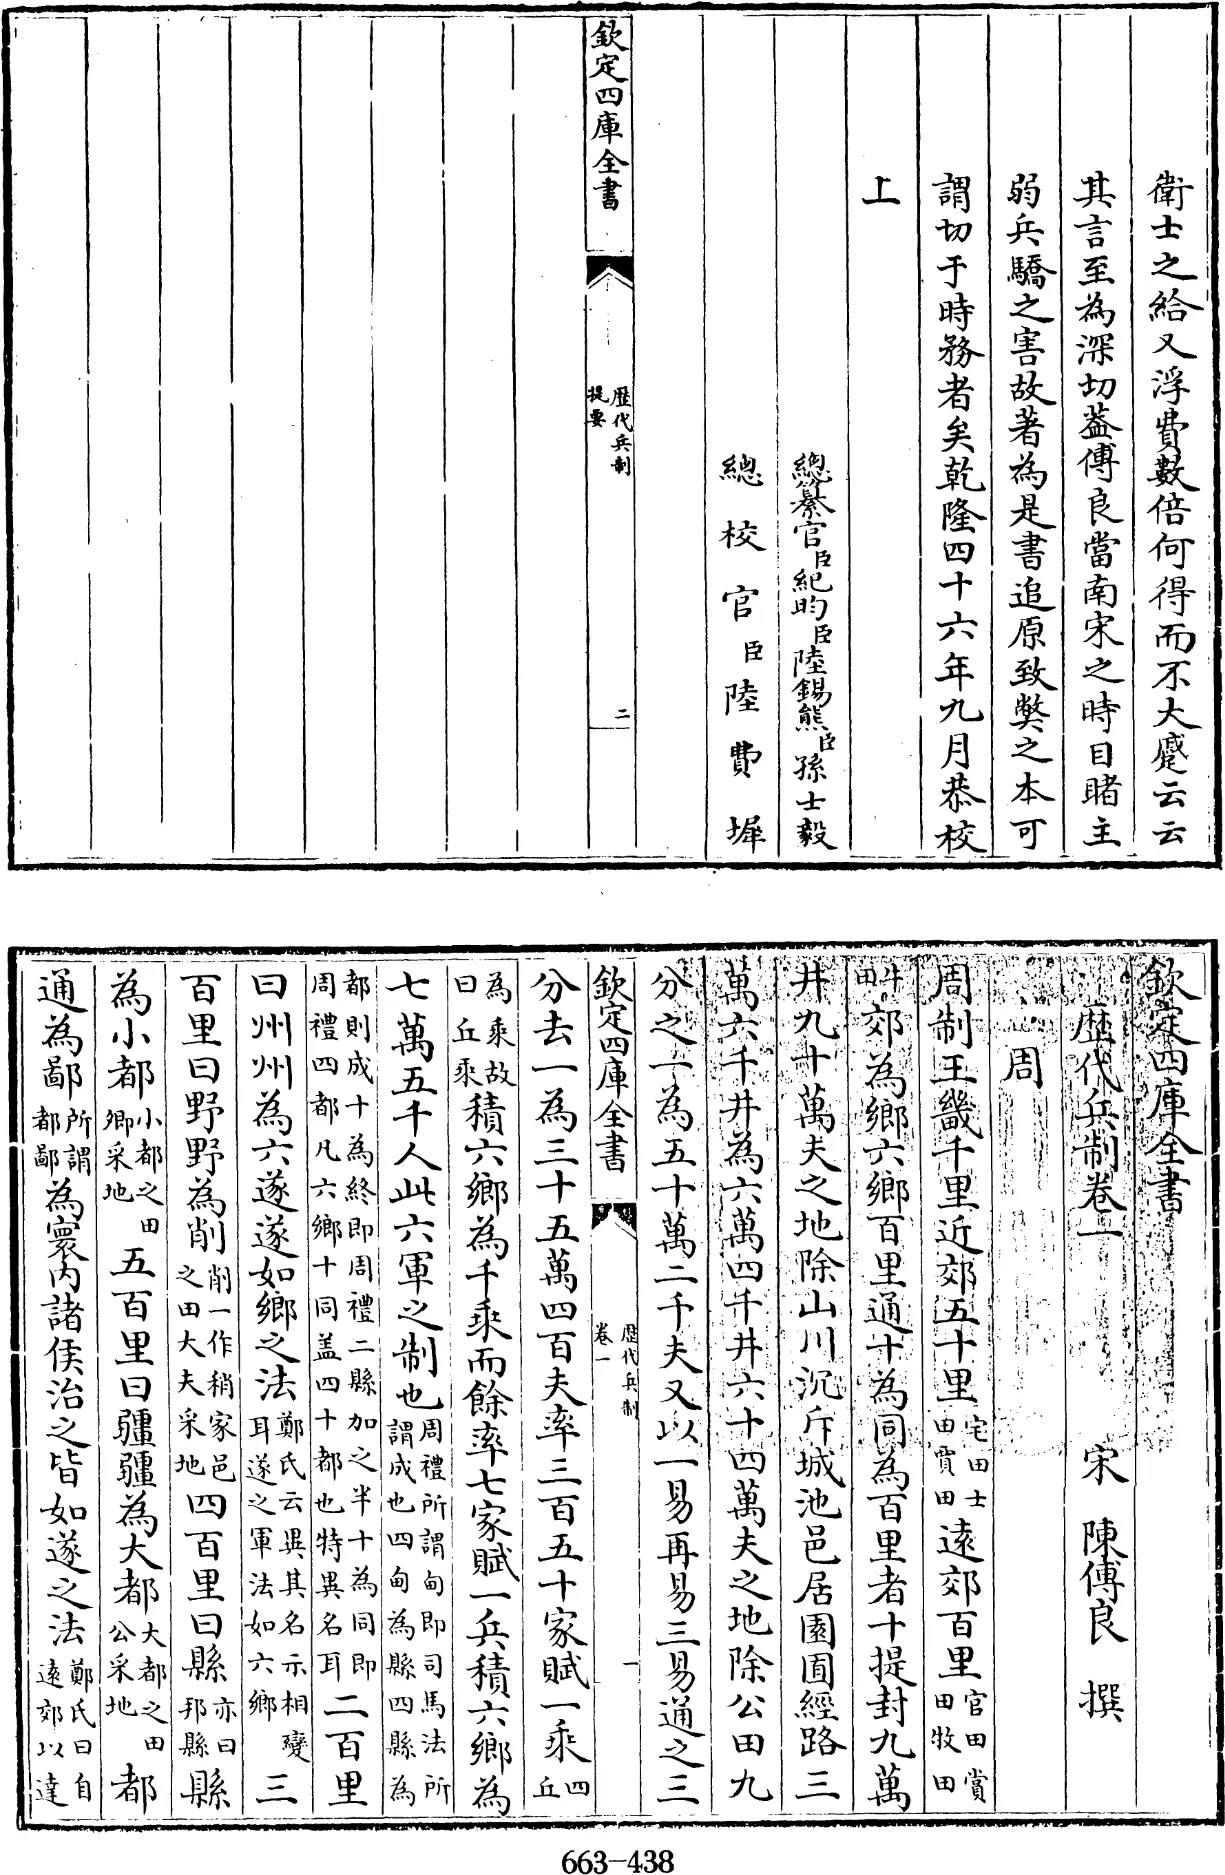 衛士之給又浮費數倍何得而不大蹙云云
其言至為深切葢傅良當南宋之時目睹主
弱兵驕之害故著為是書追原致獘之本可
謂切于時務者矣乾隆四十六年九月恭校
上
總纂官臣紀昀臣陸錫熊臣孫士毅
總校官臣陸費墀
欽定四庫全書
歷代兵制
提要
二
欽定四庫全書
歷代兵制卷一 宋 陳傅良 撰
周
周制王畿千里近郊五十里宅田士田賈田遠郊百里官田賞田牧田
牛田郊為鄉六鄉百里通十為同為百里者十提封九萬
井九十萬夫之地除山川沉斥城池邑居園囿經路三
萬六千井為六萬四千井六十四萬夫之地除公田九
分之一為五十萬二千夫又以一易再易三易通之三
欽定四庫全書
歷代兵制
卷一
一
分去一為三十五萬四百夫率三百五十家賦一乘四丘
為乘故曰丘乘積六鄉為千乘而餘率七家賦一兵積六鄉為
七萬五千人此六軍之制也周禮所謂甸即司馬法所謂成也四甸為縣四縣為
都則成十為終即周禮二縣加之半十為同即周禮四都凡六鄉十同盖四十都也特異名耳二百里
曰州州為六遂遂如鄉之法鄭氏云異其名示相變耳遂之軍法如六鄉三
百里曰野野為削削一作稍家邑之田大夫采地四百里曰縣亦曰邦縣縣
為小都小都之田卿采地五百里曰疆疆為大都大都之田公采地都
通為鄙所謂都鄙為寰内諸侯治之皆如遂之法鄭氏曰自遠郊以達
663-438